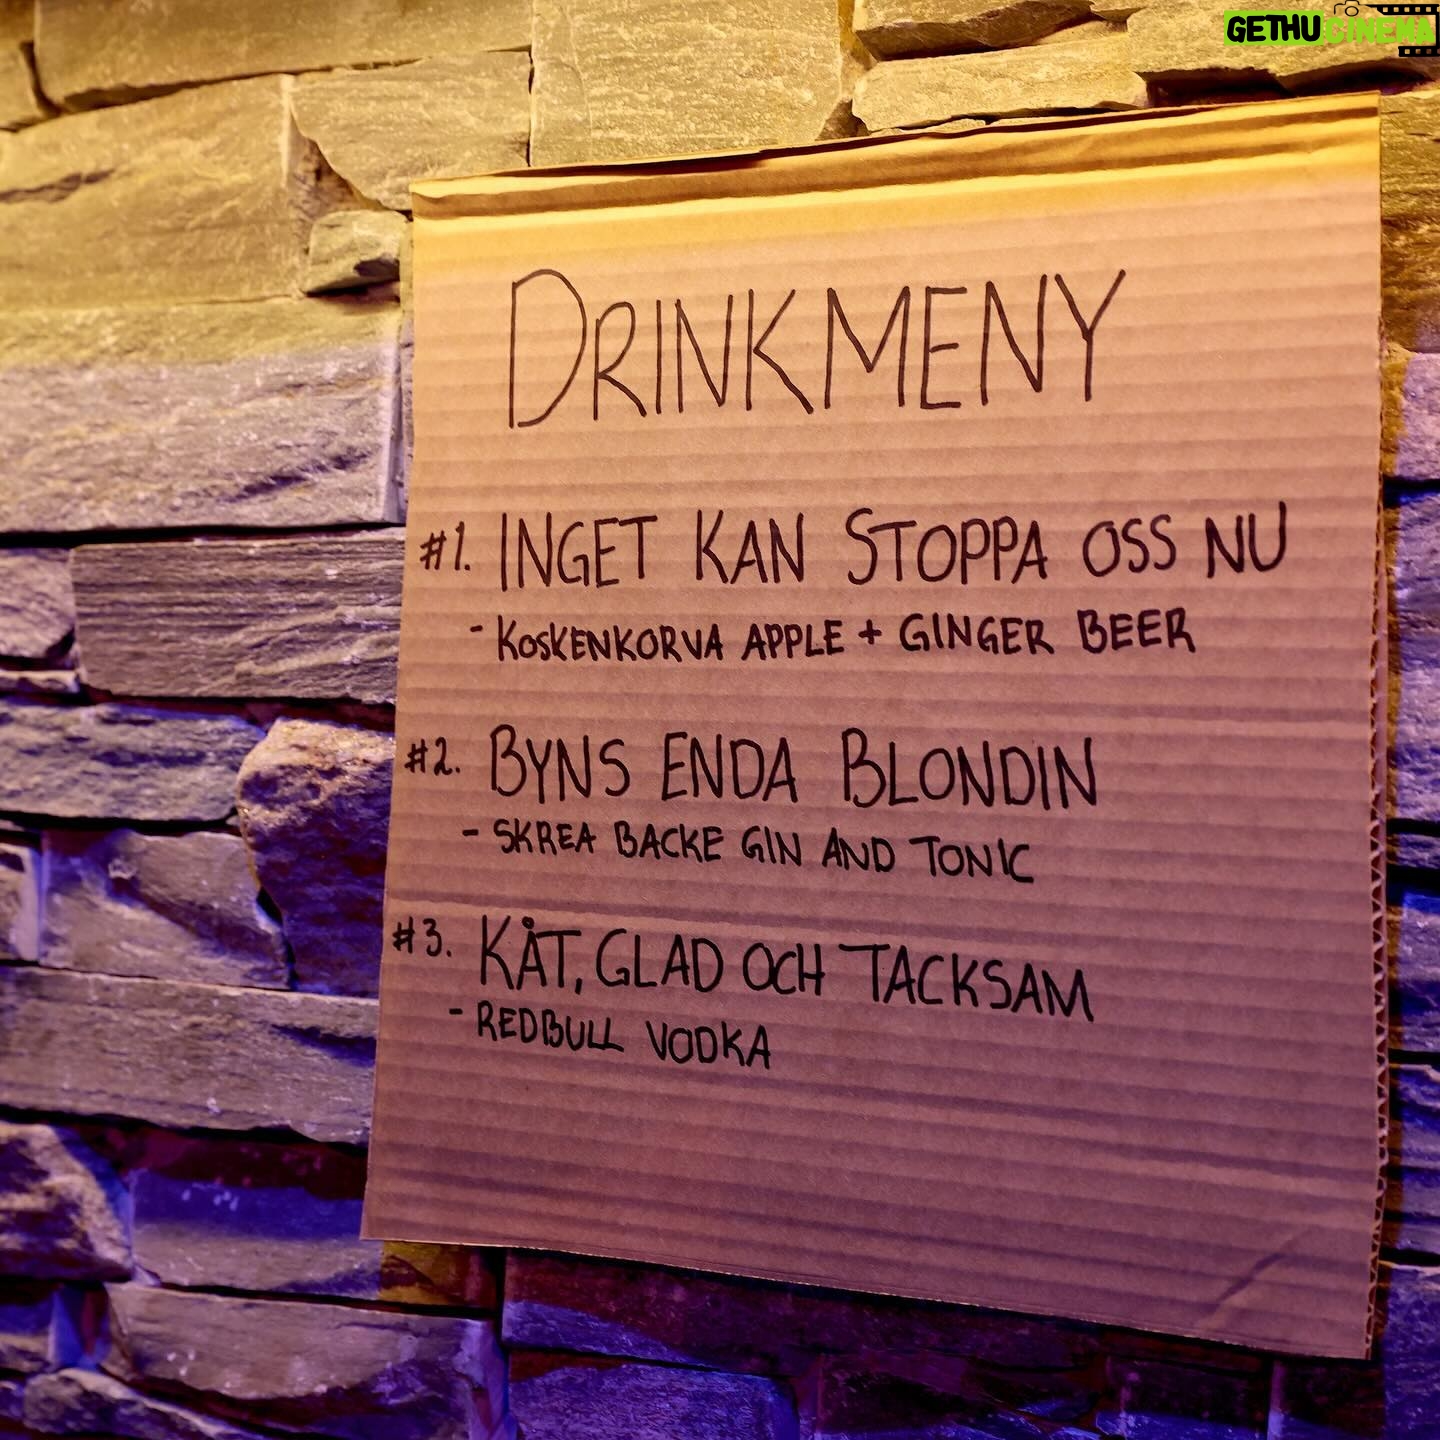 GETHUCINEMA
DRINKMENY
#1. INGET KAN STOPPA OSS NU
- KOSKENKORVA APPLE + GINGER BEER
#2. BYNS ENDA BLONDIN
- SKREA BACKE GIN AND TONIC
#3. KÅT, GLAD OCH TACKSAM
- REDBULL VODKA